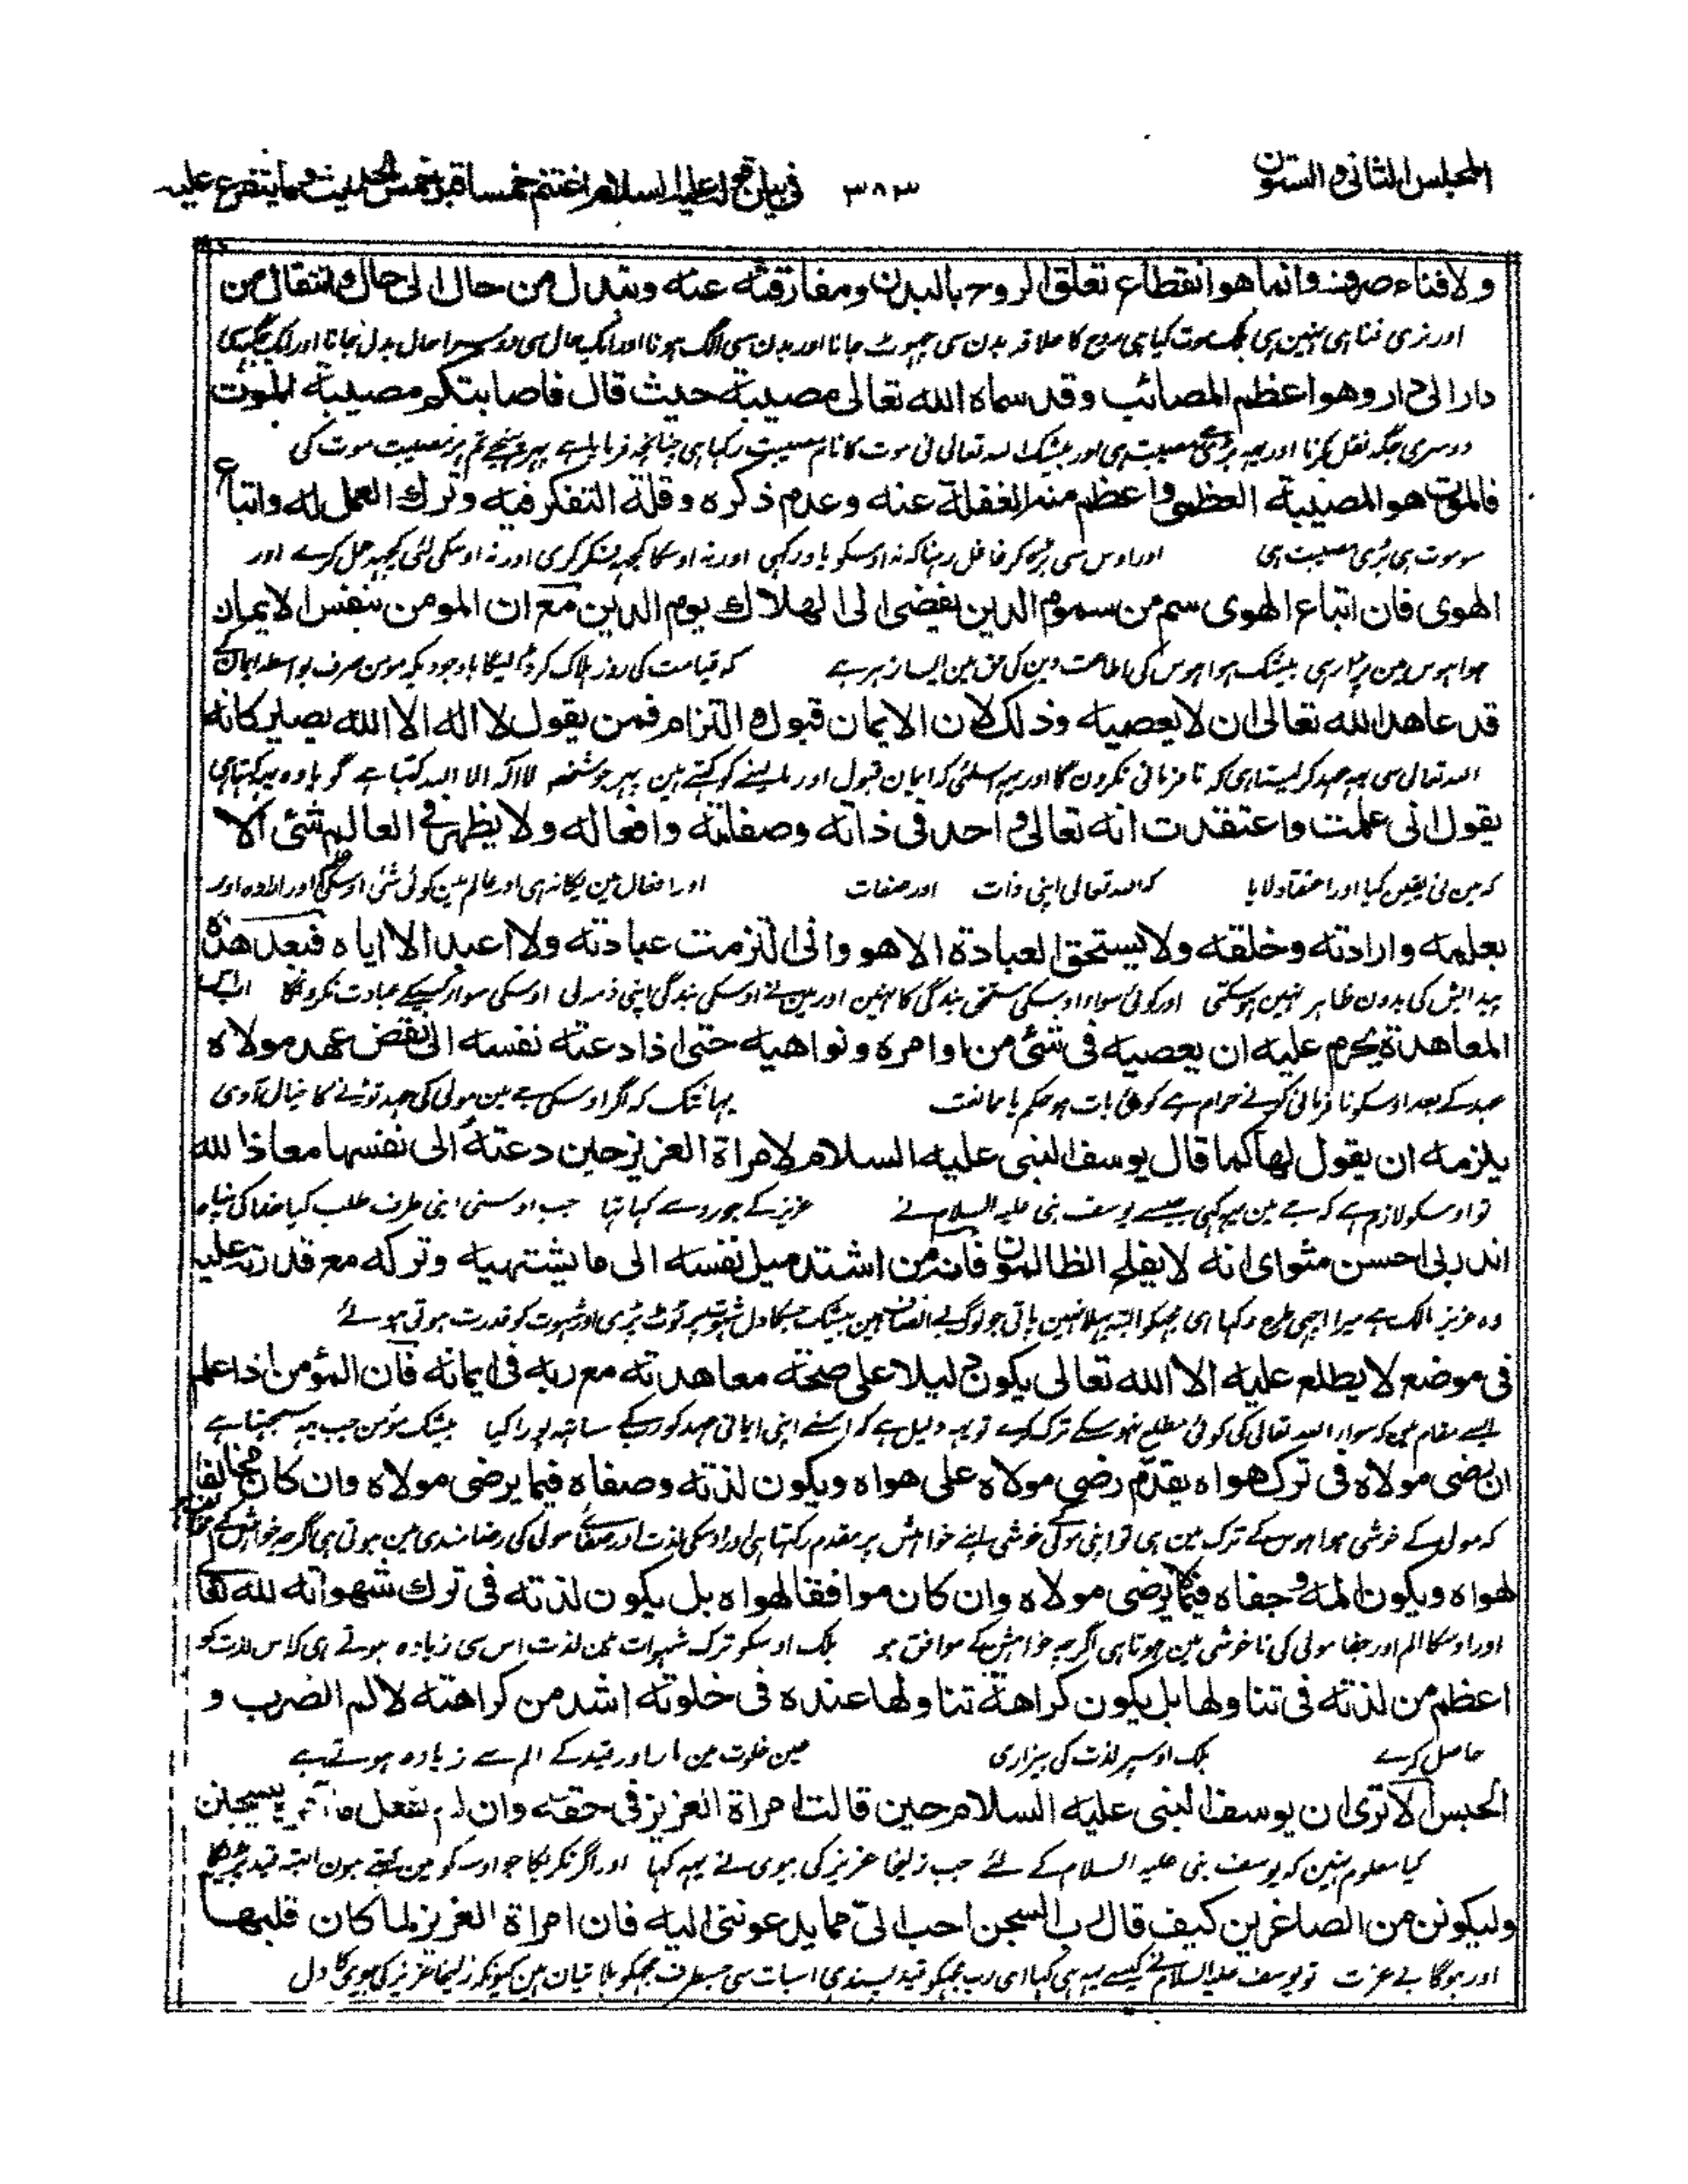 المجلس الثانی والستون ٣٨٣ فی بیان قوله علیه السلام اغتنم خمسا قبل خمس الحدیث وما یتفرع علیه
ولا فناء صرف وانما هو انقطاع تعلق الروح بالبدن ومفارقته عنه وتبدل من حال الی حال وانتقال من
اور نری فنا ہی نہین ہی بلکہ موت کیا ہی روح کا علاقہ بدن سی چہوٹ جانا اور بدن سی الگ ہونا اور ایک حال سی دوسرا حال بدل جانا اور ایک جگہ سی
دار الی دار وهو اعظم المصائب وقد سماه الله تعالی مصیبة حیث قال فاصابتکم مصیبة الموت
دوسری جگہ نقل کرنا اور یہہ بڑی مصیبت ہی اور بیشک اللہ تعالی نی موت کا نام مصیبت رکہا ہی چنانچہ فرمایا ہے پہر پہنچے تم پر مصیبت موت کی
فالموت هو المصیبة العظمی واعظم منه الغفلة عنه وعدم ذکره وقلة التفکر فیه وترک العمل له واتباع
سو موت ہی بڑی مصیبت ہی اور اوس سی بڑہکر غافل رہنا کہ نہ اوسکو یاد رکہی اور نہ اوسکا کچہ فکر کری اور نہ اوسکی لئی کچہہ عمل کرے اور
الهوی فان اتباع الهوی سم من سموم الدین یفضی الی الهلاک یوم الدین مع ان المومن بنفس الایمان
ہوا ہوس مین پڑا رہی بیشک ہوا ہوس کی اطاعت دین کی حق مین ایسا زہر ہے کہ قیامت کی روز ہلاک کر ڈالیگا باوجودیکہ مومن صرف بواسطہ ایمان کے
قد عاهد الله تعالی ان لا یعصیه وذلک لان الایمان قبول والتزام فمن یقول لا اله الا الله یصیر کانه
اللہ تعالی سی یہہ عہد کر لیتا ہی کہ نافرمانی نکرون گا اور یہہ اسلئی کہ ایمان قبول اور مان لینے کو کہتے ہین پہر جو شخص لا الہ الا اللہ کہتا ہے گویا وہ یہہ کہتا ہی
یقول انی علمت واعتقدت انه تعالی واحد فی ذاته وصفاته وافعاله ولا یظهر فی العالم شئ الا
کہ مین نی یقین کیا اور اعتقاد لایا کہ اللہ تعالی اپنی ذات اور صفات اور افعال مین یگانہ ہی اور عالم مین کوئی شئی اوسکی علم اور ارادہ اور
بعلمه وارادته وخلقه ولا یستحق العبادة الا هو وانی التزمت عبادته ولا اعبد الا ایاه فبعد هذه
پیدایش کی بدون ظاہر نہین ہو سکتی اور کوئی سوا اوسکی مستحق بندگی کا نہین اور مین نے اوسکی بندگی اپنی ذمہ لی اوسکی سوا کسیکے عبادت نکرونگا اب اس
المعاهدة یحرم علیه ان یعصیه فی شئ من اوامره ونواهیه حتی اذا دعته نفسه الی نقض عهد مولاه
عہد کے بعد اوسکو نافرمانی کرنے حرام ہے کوئی بات ہو حکم یا ممانعت یہانتک کہ اگر اوسکی جے مین مولی کی عہد توڑنے کا خیال آوی
یلزمه ان یقول لها کما قال یوسف النبی علیه السلام لامراة العزیز حین دعته الی نفسها معاذ الله
تو اوسکو لازم ہے کہ جے مین یہہ کہی جیسے یوسف نبی علیہ السلام نے عزیز کے جورو سے کہا تہا جب اوسنی اپنی طرف طلب کیا خدا کی پناہ
انه ربی احسن مثوای انه لا یفلح الظالمون فانه من اشتد میل نفسه الی ما یشتهیه وترکه مع قدرته علیه
وہ عزیز مالک ہے میرا اچہی طرح رکہا ہی مجہکو البتہ بہلا نہین پاتی جو لوگ بے انصاف ہین بیشک جسکا دل شہوت پر ٹوٹ پڑی اور شہوت کو قدرت ہوتی ہوئے
فی موضع لا یطلع علیه الا الله تعالی یکون دلیلا علی صحة معاهدته مع ربه فی ایمانه فان المؤمن اذا علم
ایسے مقام مین کہ سوا اللہ تعالی کی کوئی مطلع نہو سکے ترک کرے تو یہہ دلیل ہے کہ اسنے اپنی ایمانی عہد کو رب کے ساتہہ پورا کیا بیشک مؤمن جب یہہ سمجہتا ہے
ان رضی مولاه فی ترک هواه یقدم رضی مولاه علی هواه ویکون لذته وصفاه فیما یرضی مولاه وان کان مخالفا
کہ مولی کے خوشی ہوا ہوس کے ترک مین ہی تو اپنی مولی کی خوشی اپنے خواہش پر مقدم رکہتا ہی اور اوسکی لذت اور صفائے مولی کی رضامندی مین ہوتی ہی اگرچہ خواہش کے
لهواه ویکون المه وجفاه فیما لا یرضی مولاه وان کان موافقا لهواه بل یکون لذته فی ترک شهوآته لله تعا
اور اوسکا الم اور جفا مولی کی ناخوشی مین ہوتا ہی اگرچہ خواہش کے موافق ہو بلکہ اوسکو ترک شہوات مین لذت اس سی زیادہ ہوتے ہی کہ اس لذت کو
اعظم من لذته فی تناولها بل یکون کراهة تناولها عنده فی خلوته اشد من کراهته لالم الضرب و
حاصل کرے بلکہ اوسپر لذت کی بیزاری عین خلوت مین مار اور قید کے الم سے زیادہ ہوتے ہے
الحبس الا تری ان یوسف النبی علیه السلام حین قالت امراة العزیز فی حقه وان لم یفعل ما آمره لیسجنن
کیا معلوم نہین کہ یوسف نبی علیہ السلام کے لئے جب زلیخا عزیز کی بیوی نے یہہ کہا اور اگر نکریگا جو اوسکو مین کہتے ہون البتہ قید پڑیگا
ولیکونن من الصاغرین کیف قال رب السجن احب الیّ مما یدعوننی الیه فان امراة العزیز لما کان قلبها
اور ہوگا بے عزت تو یوسف علیہ السلام نے کیسے یہہ ہی کہا ای رب مجہکو قید پسند ہی اسبات سی جسطرف مجہکو بلاتیان ہین کیونکہ زلیخا عزیز کی بیوی کا دل